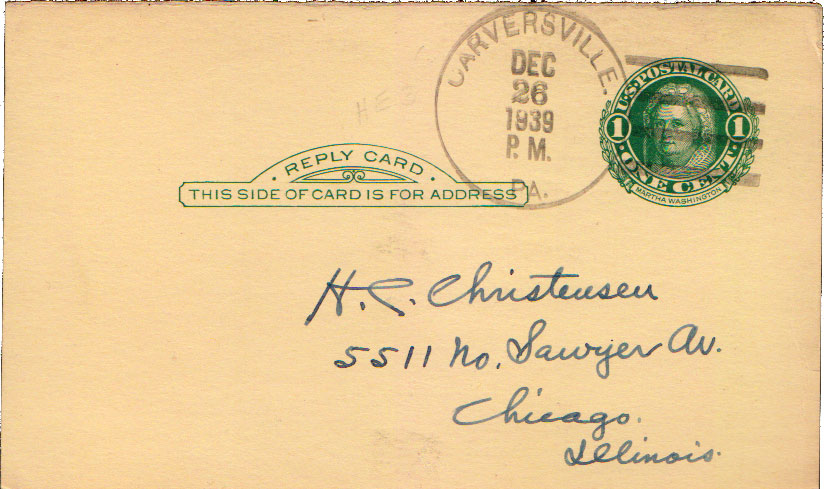 CARVERSVILLE.
DEC
26
1939
P. M.
PA.
U·S·POSTAL CARD
1 1
·ONE CENT·
MARTHA WASHINGTON
· REPLY CARD ·
THIS SIDE OF CARD IS FOR ADDRESS
H. C. Christensen
5511 No. Sawyer Av.
Chicago.
Illinois.